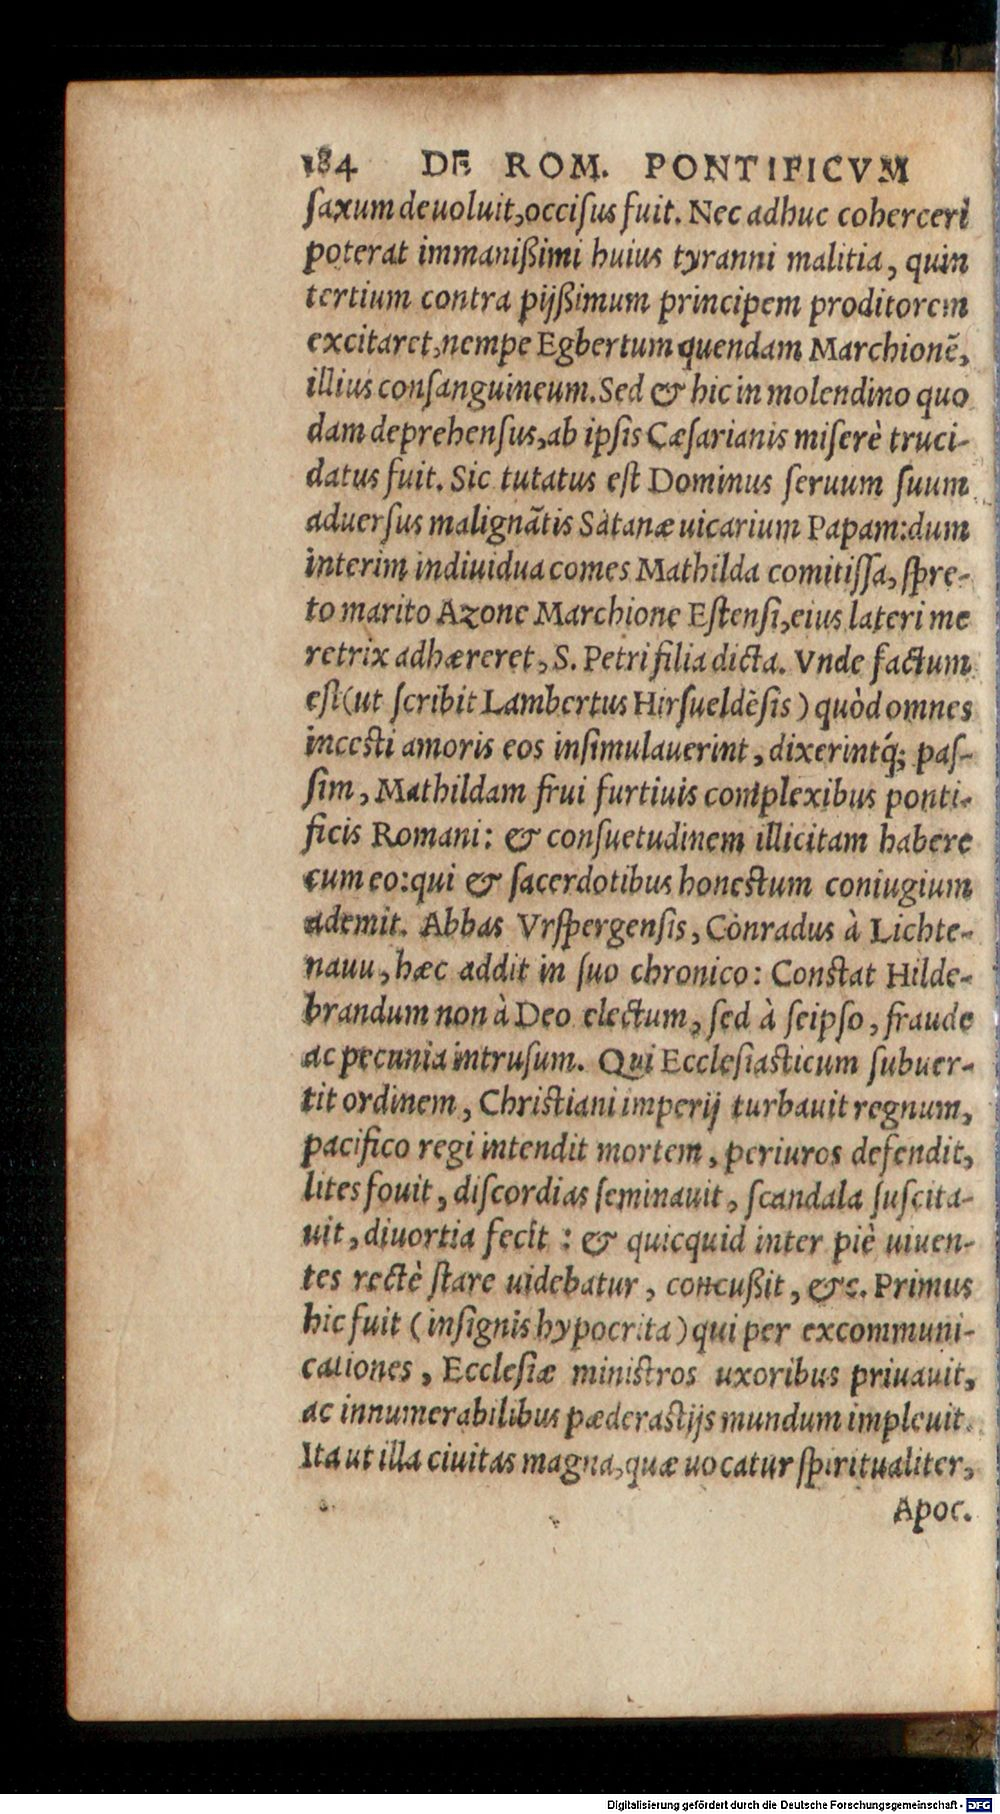 184 DE ROM. PONTIFICVM
ſaxum deuoluit, occiſus fuit. Nec adhuc coherceri
poterat immanißimi huius tyranni malitia, quin
tertium contra pijßimum principem proditorem
excitaret, nempe Egbertum quendam Marchionē,
illius conſanguineum. Sed & hic in molendino quo
dam deprehenſus, ab ipſis Cæſarianis miſerè truci-
datus fuit. Sic tutatus eſt Dominus ſeruum ſuum
aduerſus malignātis Satanæ uicarium Papam: dum
interim indiuidua comes Mathilda comitiſſa, ſpre-
to marito Azone Marchione Eſtenſi, eius lateri me
retrix adhæreret, S. Petri filia dicta. Vnde factum
eſt (ut ſcribit Lambertus Hirſueldēſis) quòd omnes
inceſti amoris eos inſimulauerint, dixerintq́; paſ-
ſim, Mathildam frui furtiuis complexibus ponti-
ficis Romani: & conſuetudinem illicitam habere
cum eo: qui & ſacerdotibus honeſtum coniugium
ademit. Abbas Vrſpergenſis, Conradus à Lichte-
nauu, hæc addit in ſuo chronico: Conſtat Hilde-
brandum non à Deo electum, ſed à ſeipſo, fraude
ac pecunia intruſum. Qui Eccleſiaſticum ſubuer-
tit ordinem, Chriſtiani imperij turbauit regnum,
pacifico regi intendit mortem, periuros defendit,
lites fouit, diſcordias ſeminauit, ſcandala ſuſcita-
uit, diuortia fecit : & quicquid inter piè uiuen-
tes rectè ſtare uidebatur, concußit, &c. Primus
hic fuit (inſignis hypocrita) qui per excommuni-
cationes, Eccleſiæ miniſtros uxoribus priuauit,
ac innumerabilibus pæderaſtijs mundum impleuit.
Ita ut illa ciuitas magna, quæ uocatur ſpiritualiter,
Apoc.
Digitalisierung gefördert durch die Deutsche Forschungsgemeinschaft - DFG